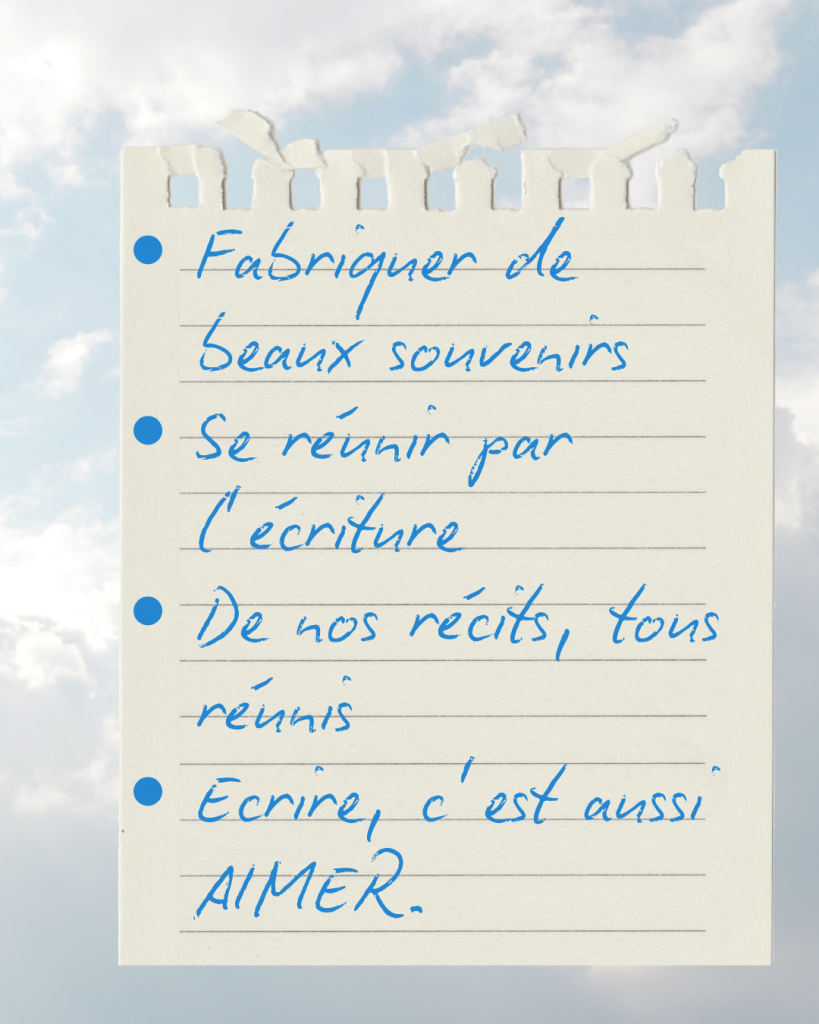 • Fabriquer de
beaux souvenirs
• Se réunir par
l'écriture
• De nos récits, tous
réunis
• Ecrire, c'est aussi
AIMER.